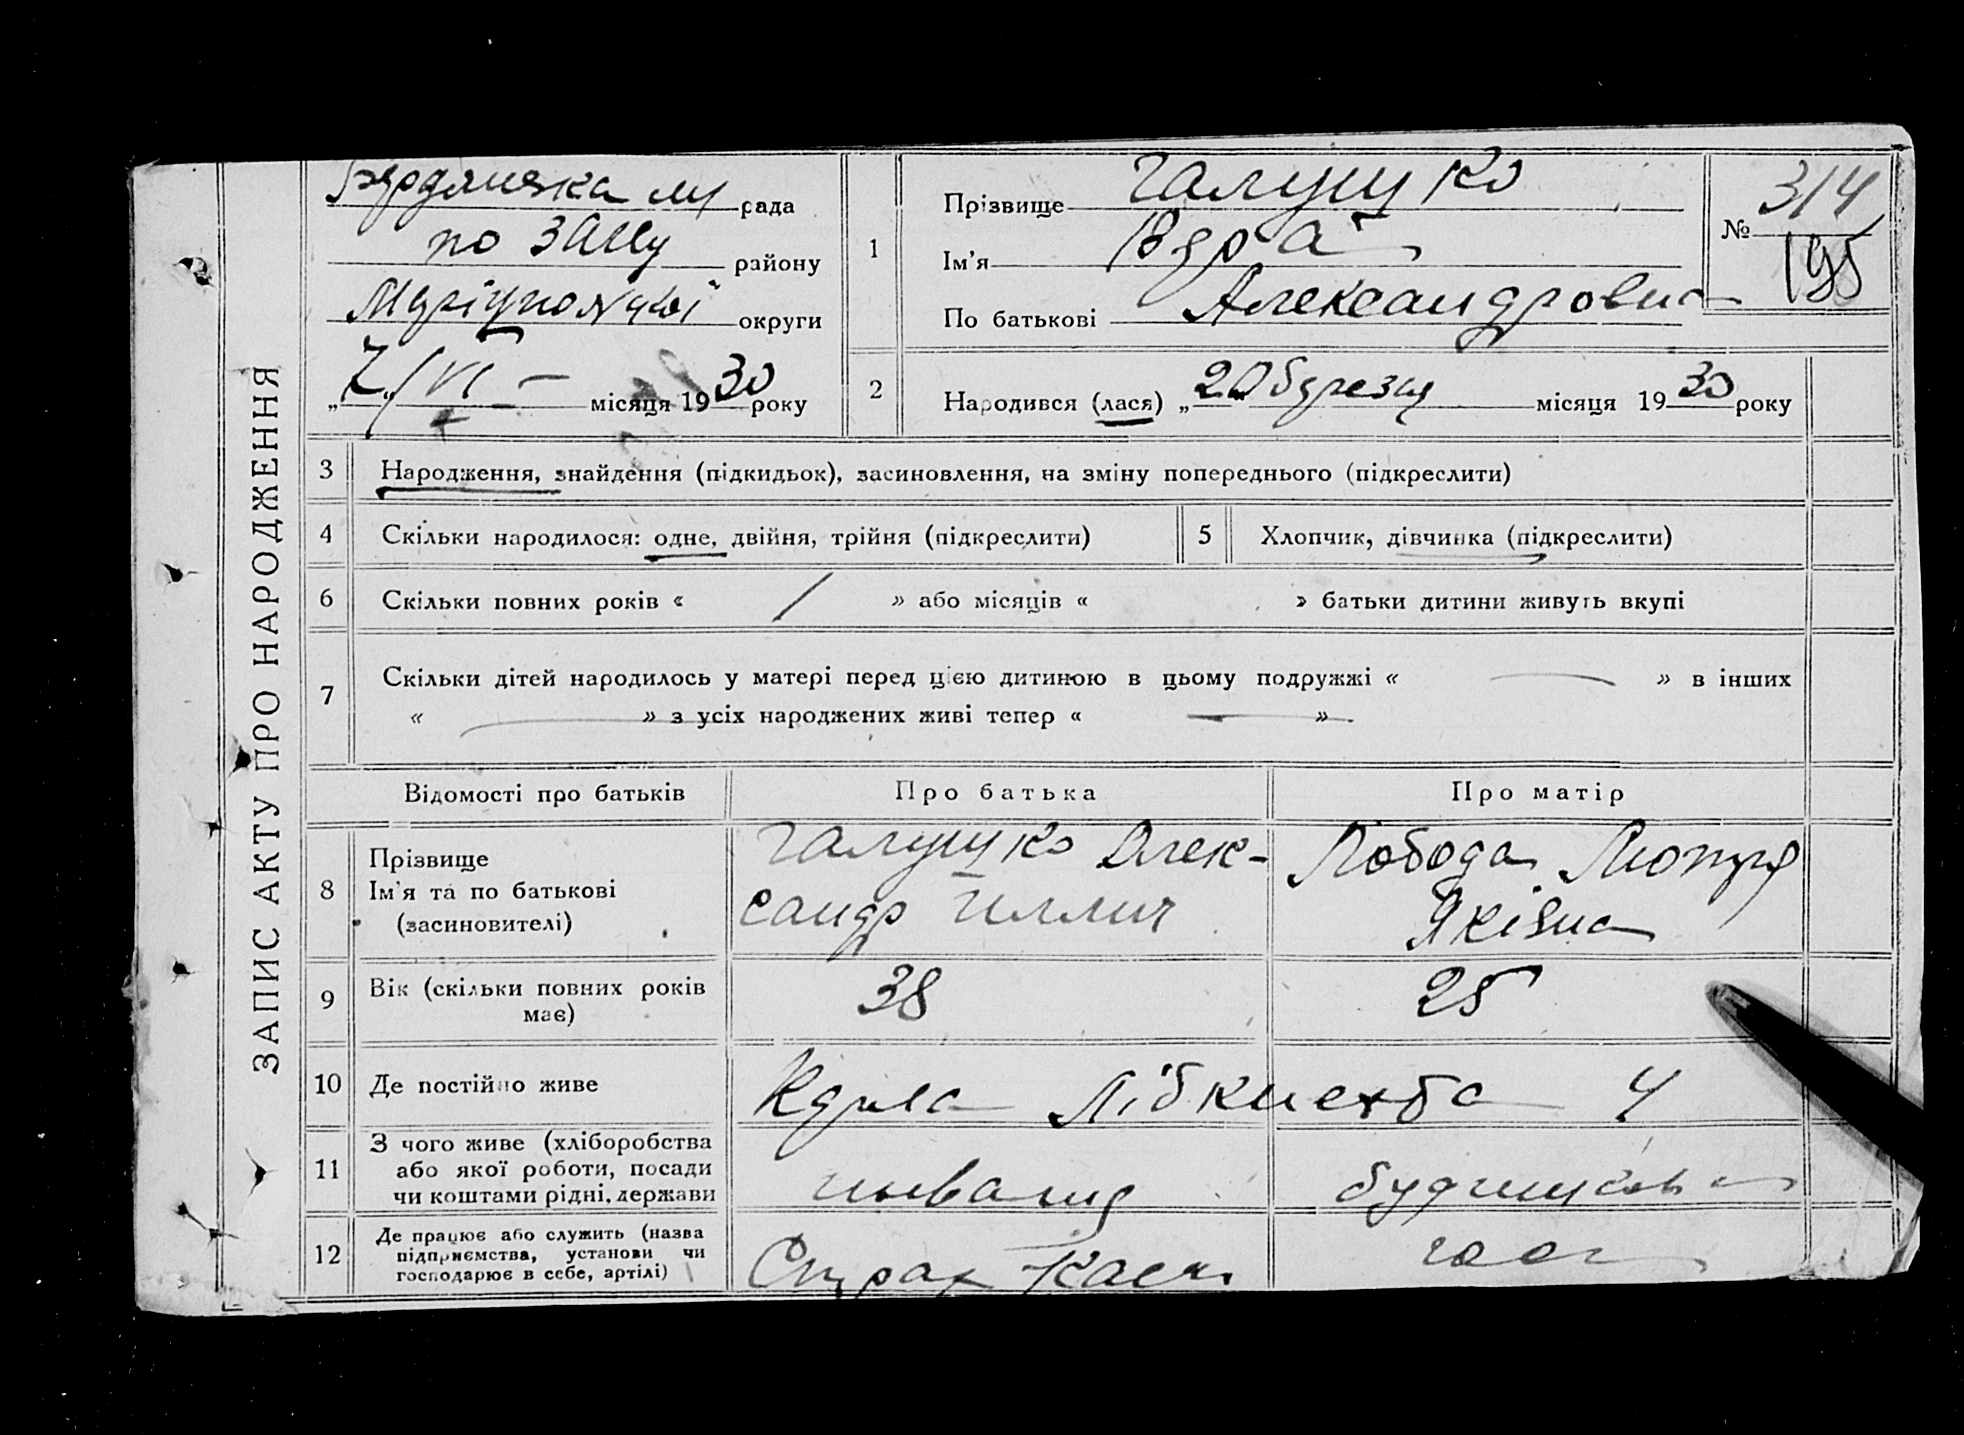 ЗАПИС АКТУ ПРО НАРОДЖЕННЯ
Бердянська рада
по ЗАЦу району
Маріупольської округи
„7“ VI місяця 1930 року
1 Прізвище Галушко
Ім'я Вера
По батькові Александровна
№ 314
195
2 Народився (лася) „20“ березня місяця 1930 року
3 Народження, знайдення (підкидьок), засиновлення, на зміну попереднього (підкреслити)
4 Скільки народилося: одне, двійня, трійня (підкреслити) 5 Хлопчик, дівчинка (підкреслити)
6 Скільки повних років « / » або місяців « » батьки дитини живуть вкупі
7 Скільки дітей народилось у матері перед цією дитиною в цьому подружжі « — » в інших
« — » з усіх народжених живі тепер « — »
Відомості про батьків Про батька Про матір
8 Прізвище
Ім'я та по батькові
(засиновителі)
Галушко Олек-
сандр Ілліч
Лобода
Яківна
9 Вік (скільки повних років
має)
38 25
10 Де постійно живе Лібкнехта 4
11 З чого живе (хліборобства
або якої роботи, посади
чи коштами рідні, держави
инвалид
12 Де працює або служить (назва
підприємства, установи чи
господарює в себе, артілі)
Страх Каси